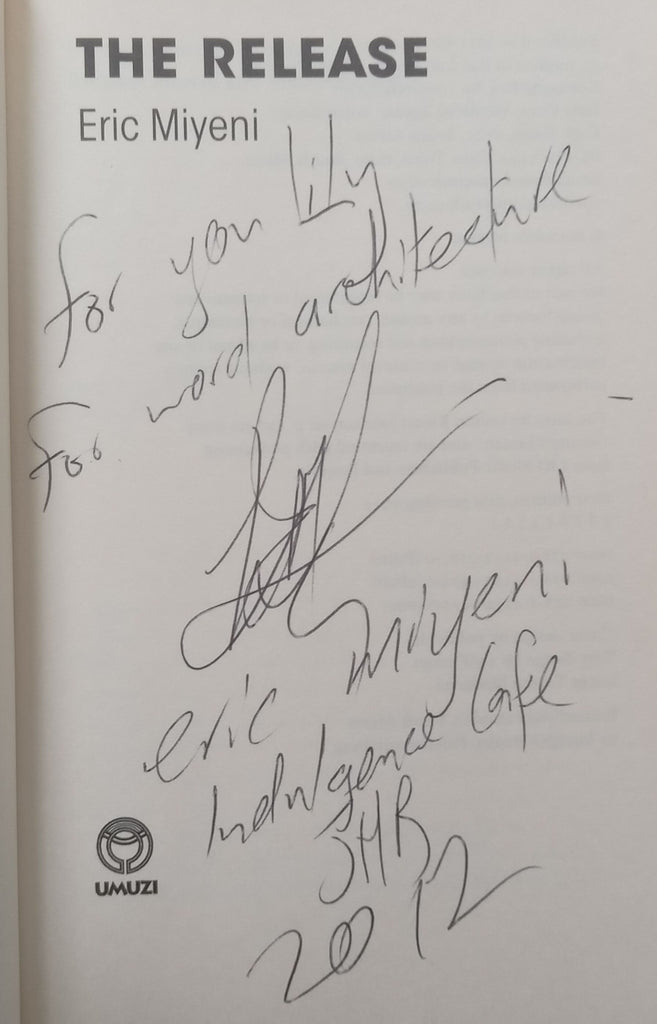 THE RELEASE
Eric Miyeni
For you Lily
For word architecture
eric miyeni
Indulgence Cafe
JHB
2012
UMUZI